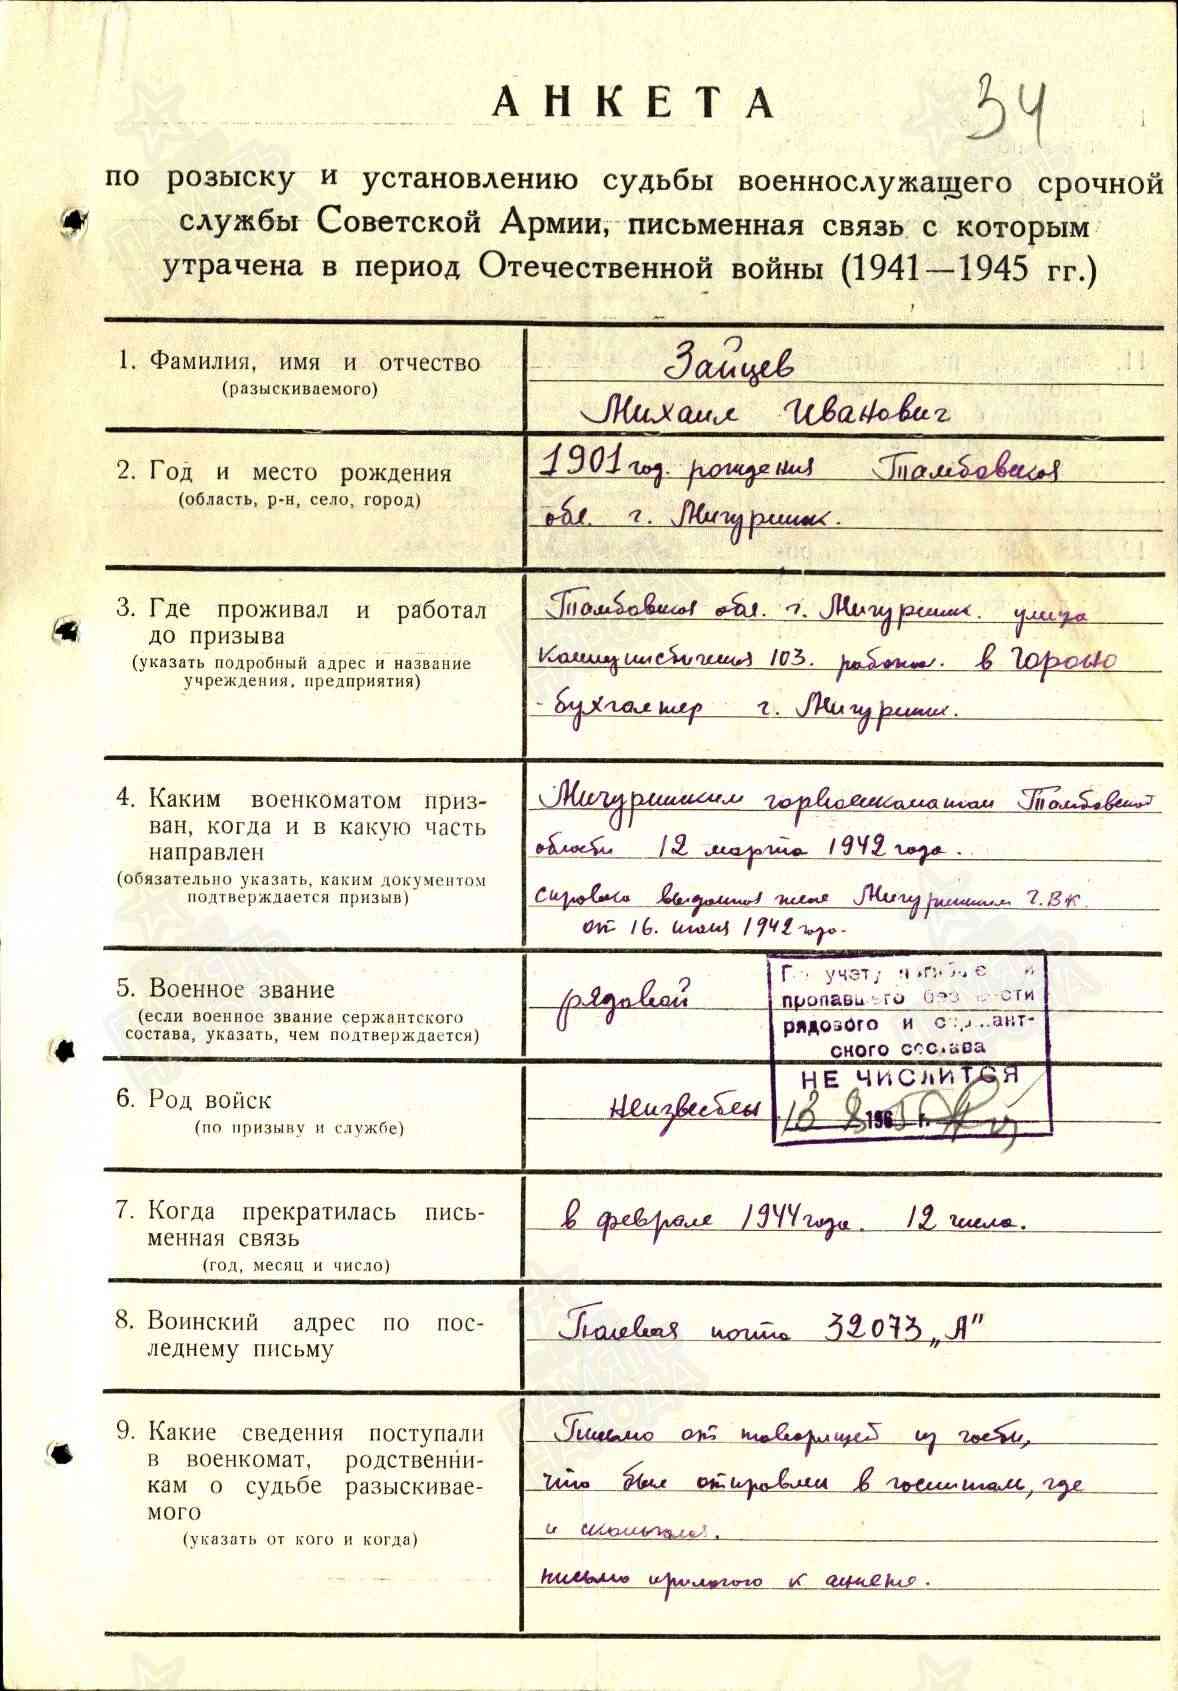 АНКЕТА
34
по розыску и установлению судьбы военнослужащего срочной
службы Советской Армии, письменная связь с которым
утрачена в период Отечественной войны (1941—1945 гг.)
1. Фамилия, имя и отчество
(разыскиваемого)
Зайцев
Михаил Иванович
2. Год и место рождения
(область, р-н, село, город)
1901 год. рождения Тамбовская
обл. г. Мичуринск.
3. Где проживал и работал
до призыва
(указать подробный адрес и название
учреждения, предприятия)
Тамбовская обл. г. Мичуринск. улица
Коммунистическая 103. работал. в ГорОНО
- бухгалтер г. Мичуринск.
4. Каким военкоматом приз-
ван, когда и в какую часть
направлен
(обязательно указать, каким документом
подтверждается призыв)
Мичуринским горвоенкоматом Тамбовской
области 12 марта 1942 года.
справка выданная мне Мичуринским Г.В.К.
от 16. июля 1942 года.
5. Военное звание
(если военное звание сержантского
состава, указать, чем подтверждается)
рядовой
По учету погибшего и
пропавшего без вести
рядового и сержант-
ского состава
НЕ ЧИСЛИТСЯ
196 г.
6. Род войск
(по призыву и службе)
Неизвестен
7. Когда прекратилась пись-
менная связь
(год, месяц и число)
в феврале 1944 года. 12 числа.
8. Воинский адрес по пос-
леднему письму
Полевая почта 32073 „А"
9. Какие сведения поступали
в военкомат, родственни-
кам о судьбе разыскивае-
мого
(указать от кого и когда)
Письмо от товарищей из части,
что был отправлен в госпиталь, где
и скончался.
письмо прилагаю к анкете.
ПАМЯТЬ
НАРОДА